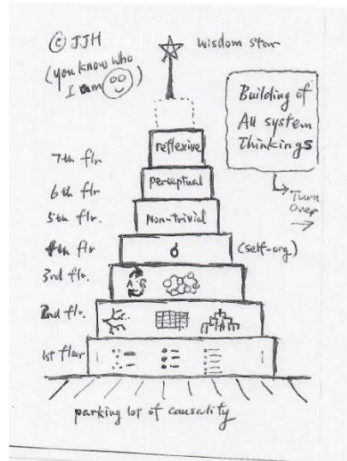 © JJH
(you know who
I am)
wisdom star
Building of
All system
Thinkings
Turn
Over
7th flr.
reflexive
6th flr.
perceptual
5th flr.
Non-trivial
4th flr
(self-org)
3rd flr.
2nd flr.
1st floor
parking lot of causality